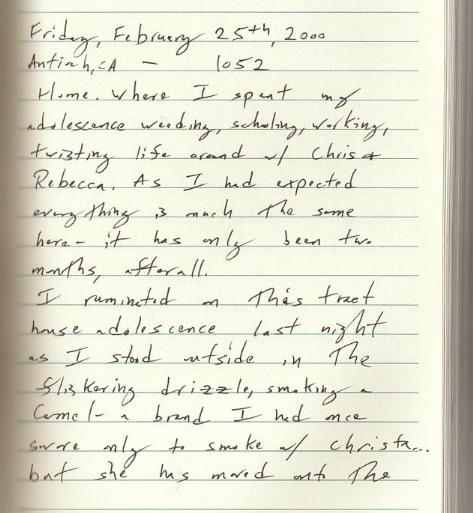 Friday, February 25th, 2000
Antioch, CA – 1052
Home. Where I spent my
adolescence weeding, schooling, working,
twisting life around w/ Chris &
Rebecca. As I had expected
everything is much the same
here – it has only been two
months, afterall.
I ruminated on this tract
house adolescence last night
as I stood outside in the
flickering drizzle, smoking a
Camel – a brand I had once
swore only to smoke w/ Christa...
but she has moved onto the